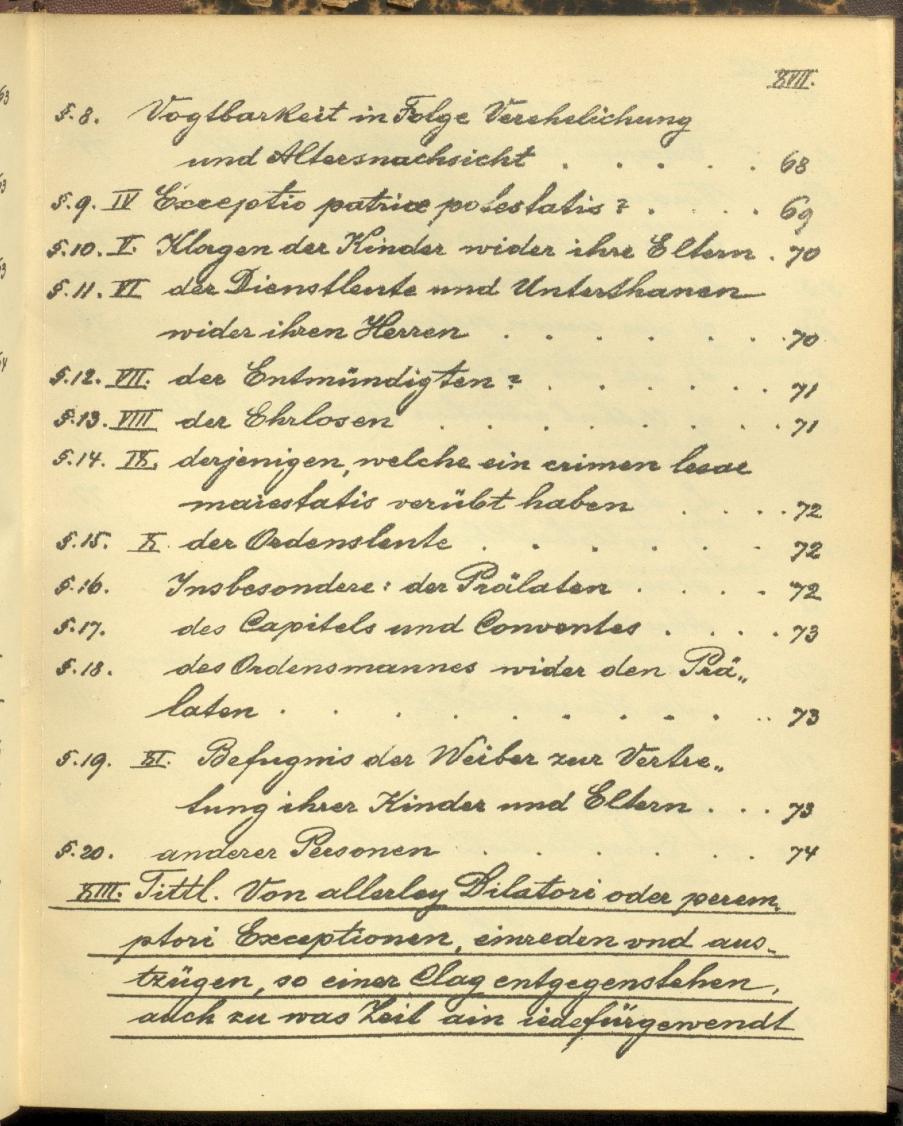 XVII.
§.8. Vogtbarkeit in Folge Verehelichung
und Altersnachsicht . . . . . 68
§.9. IV Exceptio patriae potestatis? . . . . 69
§.10. V. Klagen der Kinder wider ihre Eltern . 70
§.11. VI der Dienstleute und Unterthanen
wider ihren Herren . . . . . . . 70
§.12. VII. der Entmündigten? . . . . . . 71
§.13. VIII der Ehrlosen . . . . . . . . 71
§.14. IX. derjenigen, welche ein crimen lesae
maiestatis verübt haben . . . . 72
§.15. X. der Ordensleute . . . . . . 72
§.16. Insbesondere: der Prälaten . . . . 72
§.17. des Capitels und Conventes . . . . 73
§.18. des Ordensmannes wider den Prä„
laten . . . . . . . . . . 73
§.19. XI. Befugnis der Weiber zur Vertre„
tung ihrer Kinder und Eltern . . . 73
§.20. anderer Personen . . . . . . 74
XIII. Tittl. Von allerley Dilatori oder perem„
ptori Exceptionen, einreden vnd aus„
tzügen, so einer Clag entgegenstehen,
auch zu was Zeit ain iede fürgewendt